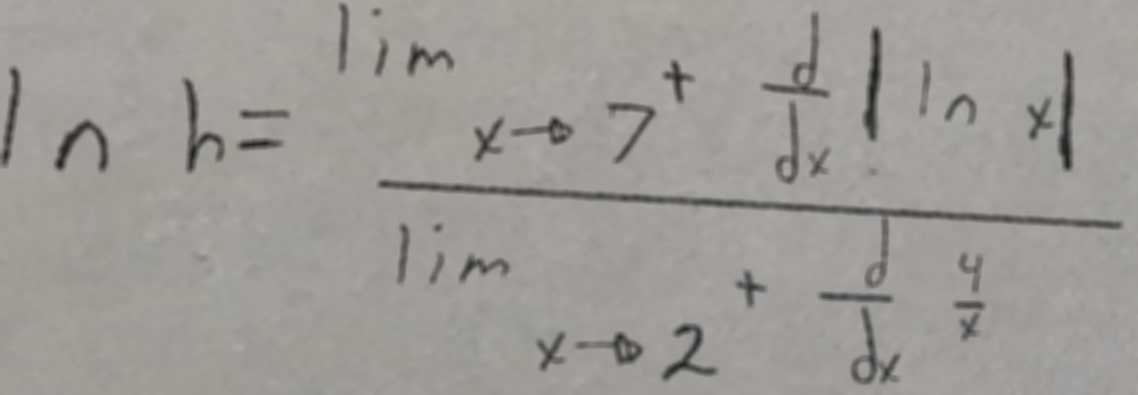 ln h = lim x→7⁺ d/dx |ln x|
lim x→2⁺ d/dx 4/x